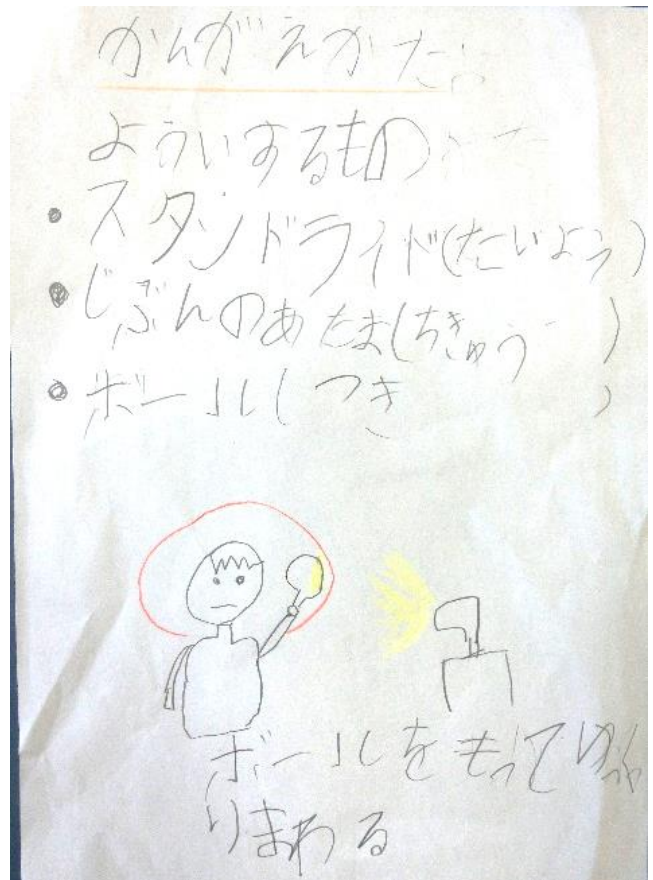 かんがえかた
よういするもの
・スタンドライト(たいよう)
・じぶんのあたま(ちきゅう)
・ボール(つき)
ボールをもってゆっく
りまわる